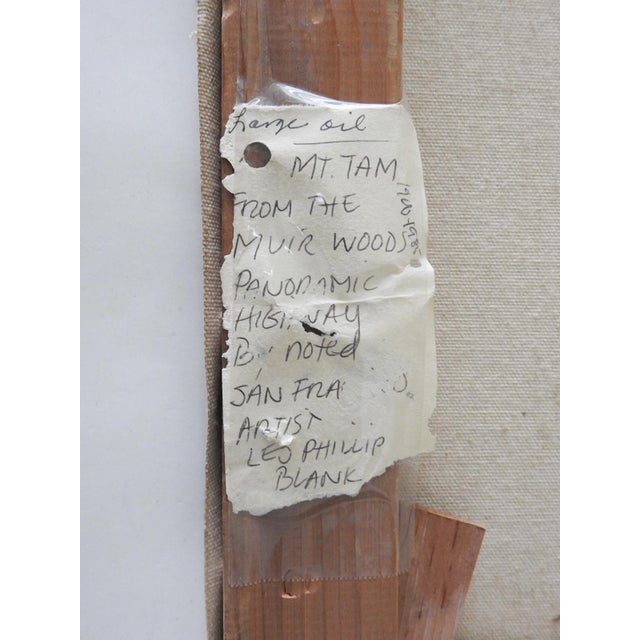 Large oil
MT. TAM
FROM THE
MUIR WOODS
PANORAMIC
HIGHWAY
By noted
SAN FRA
ARTIST
LES PHILLIP
BLANK